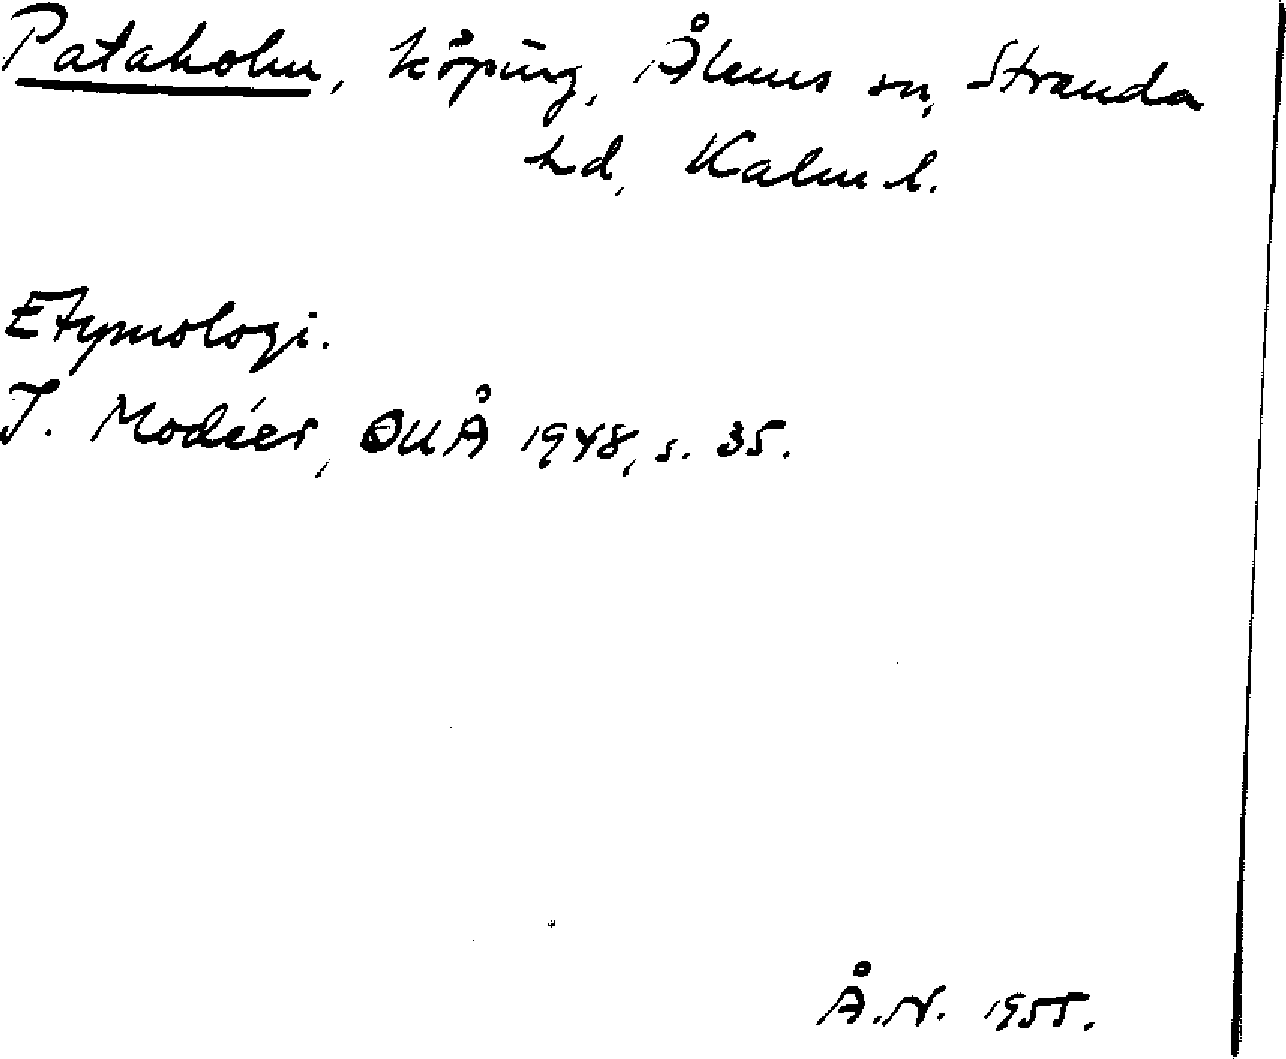 Pataholm, köping, Ålems sn, Stranda
hd, Kalm. l.
Etymologi.
I. Modéer, OUÅ 1948, s. 35.
Å.N. 1955.